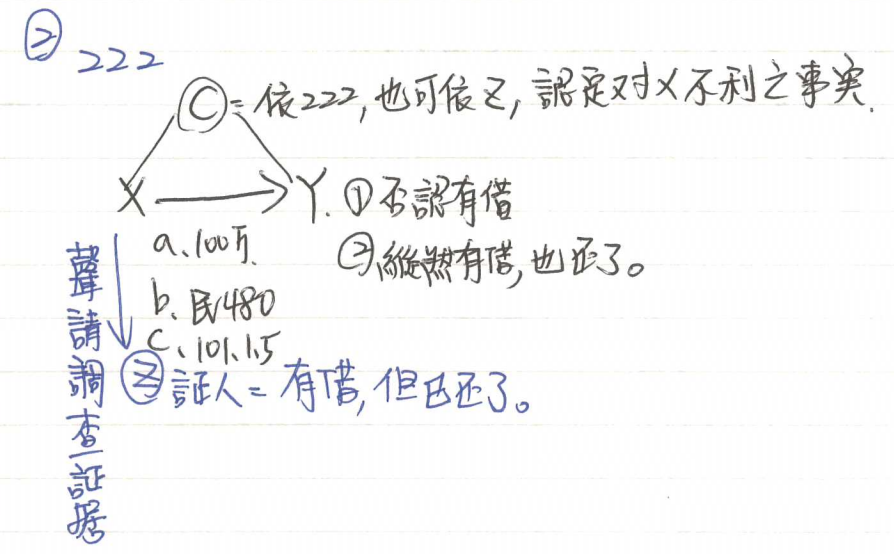 ② 222
Ⓒ=依222,也可依Z,認定对X不利之事実.
X → Y. ①否認有借
a、100万.
②縱然有借,也还了。
b、民480
c、101.1.5
聲請調查証据
Ⓩ証人=有借,但已还了。